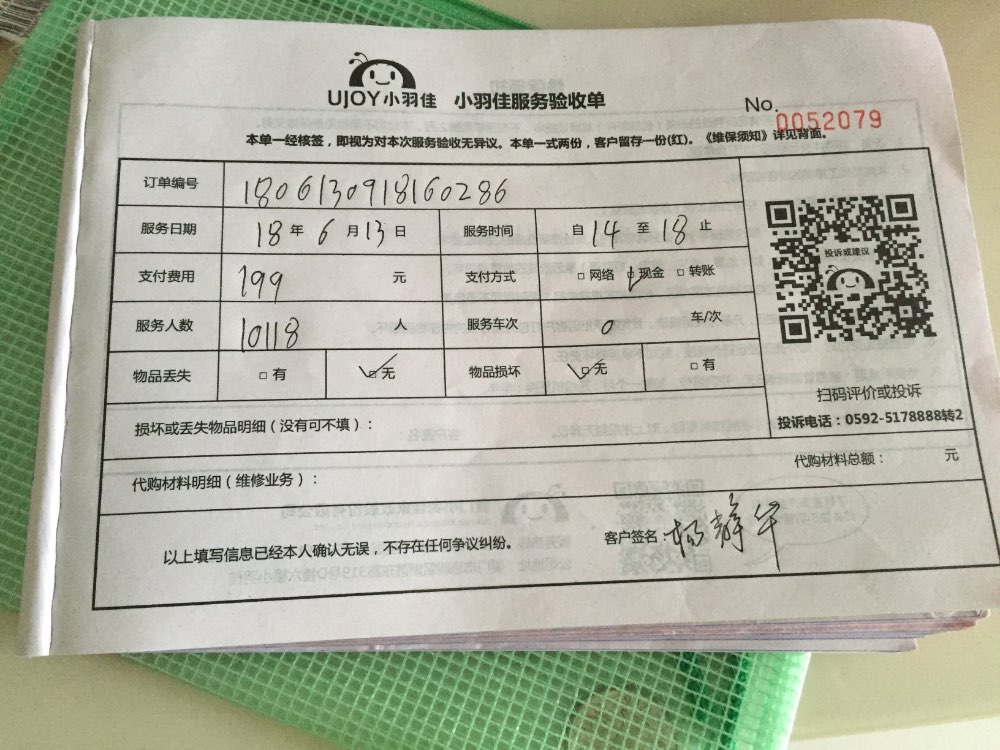 UJOY小羽佳 小羽佳服务验收单
No. 0052079
本单一经核签，即视为对本次服务验收无异议。本单一式两份，客户留存一份(红)。《维保须知》详见背面。
订单编号 1806130918160286
服务日期 18 年 6 月 13 日 服务时间 自 14 至 18 止
支付费用 199 元 支付方式 □ 网络 □ 现金 □ 转账
服务人数 10118 人 服务车次 0 车/次
物品丢失 □ 有 □ 无 物品损坏 □ 无 □ 有
投诉或建议
扫码评价或投诉
投诉电话：0592-5178888转2
损坏或丢失物品明细（没有可不填）：
代购材料明细（维修业务）： 代购材料总额： 元
以上填写信息已经本人确认无误，不存在任何争议纠纷。 客户签名 杨静华